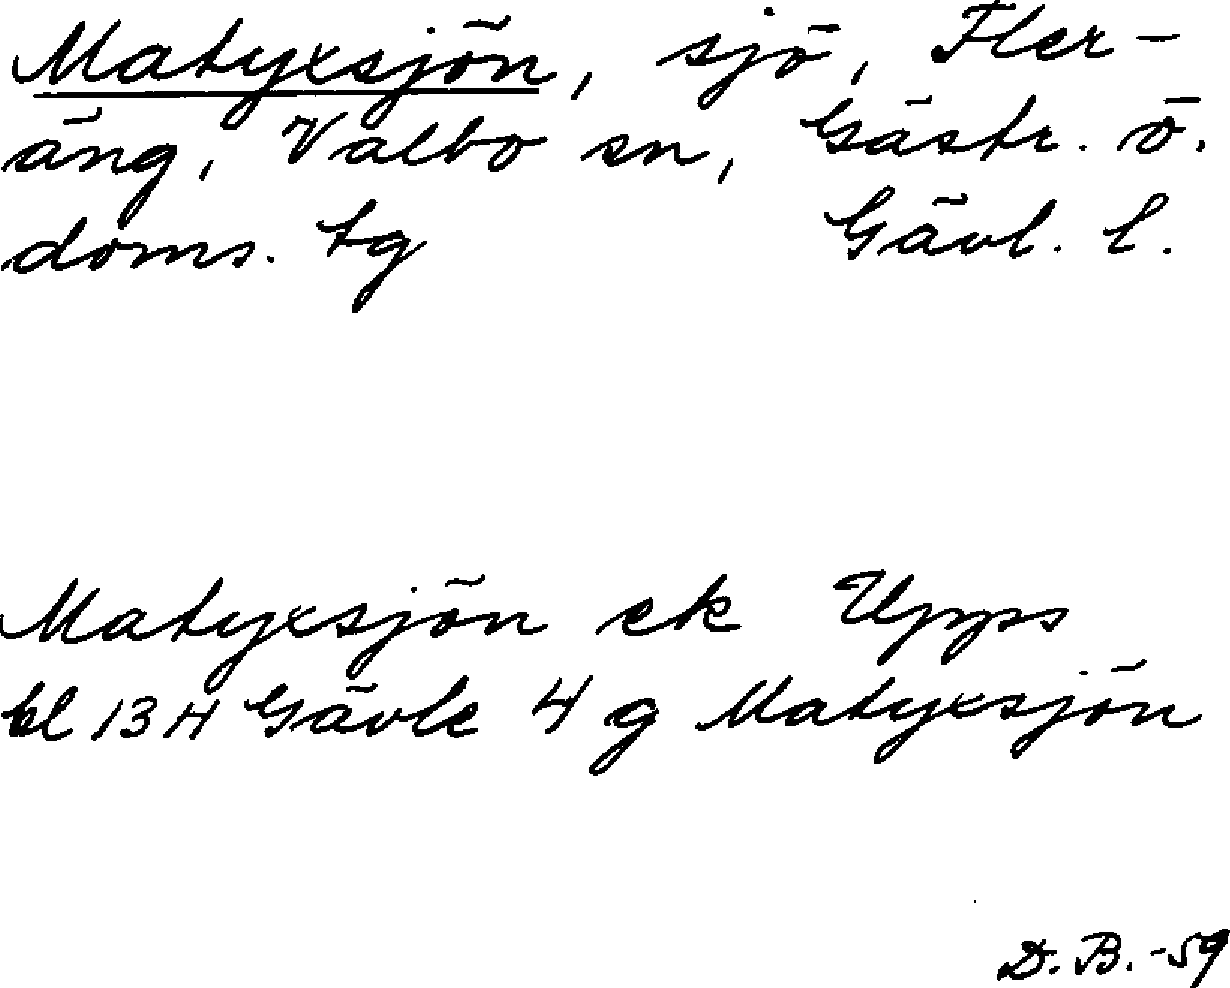 Matyxsjön, sjö, Fler-
äng, Valbo sn, Gästr. ö.
doms. tg Gävl. l.
Matyxsjön ek Upps
bl 13 H Gävle 4 g Matyxsjön
D.B. -59